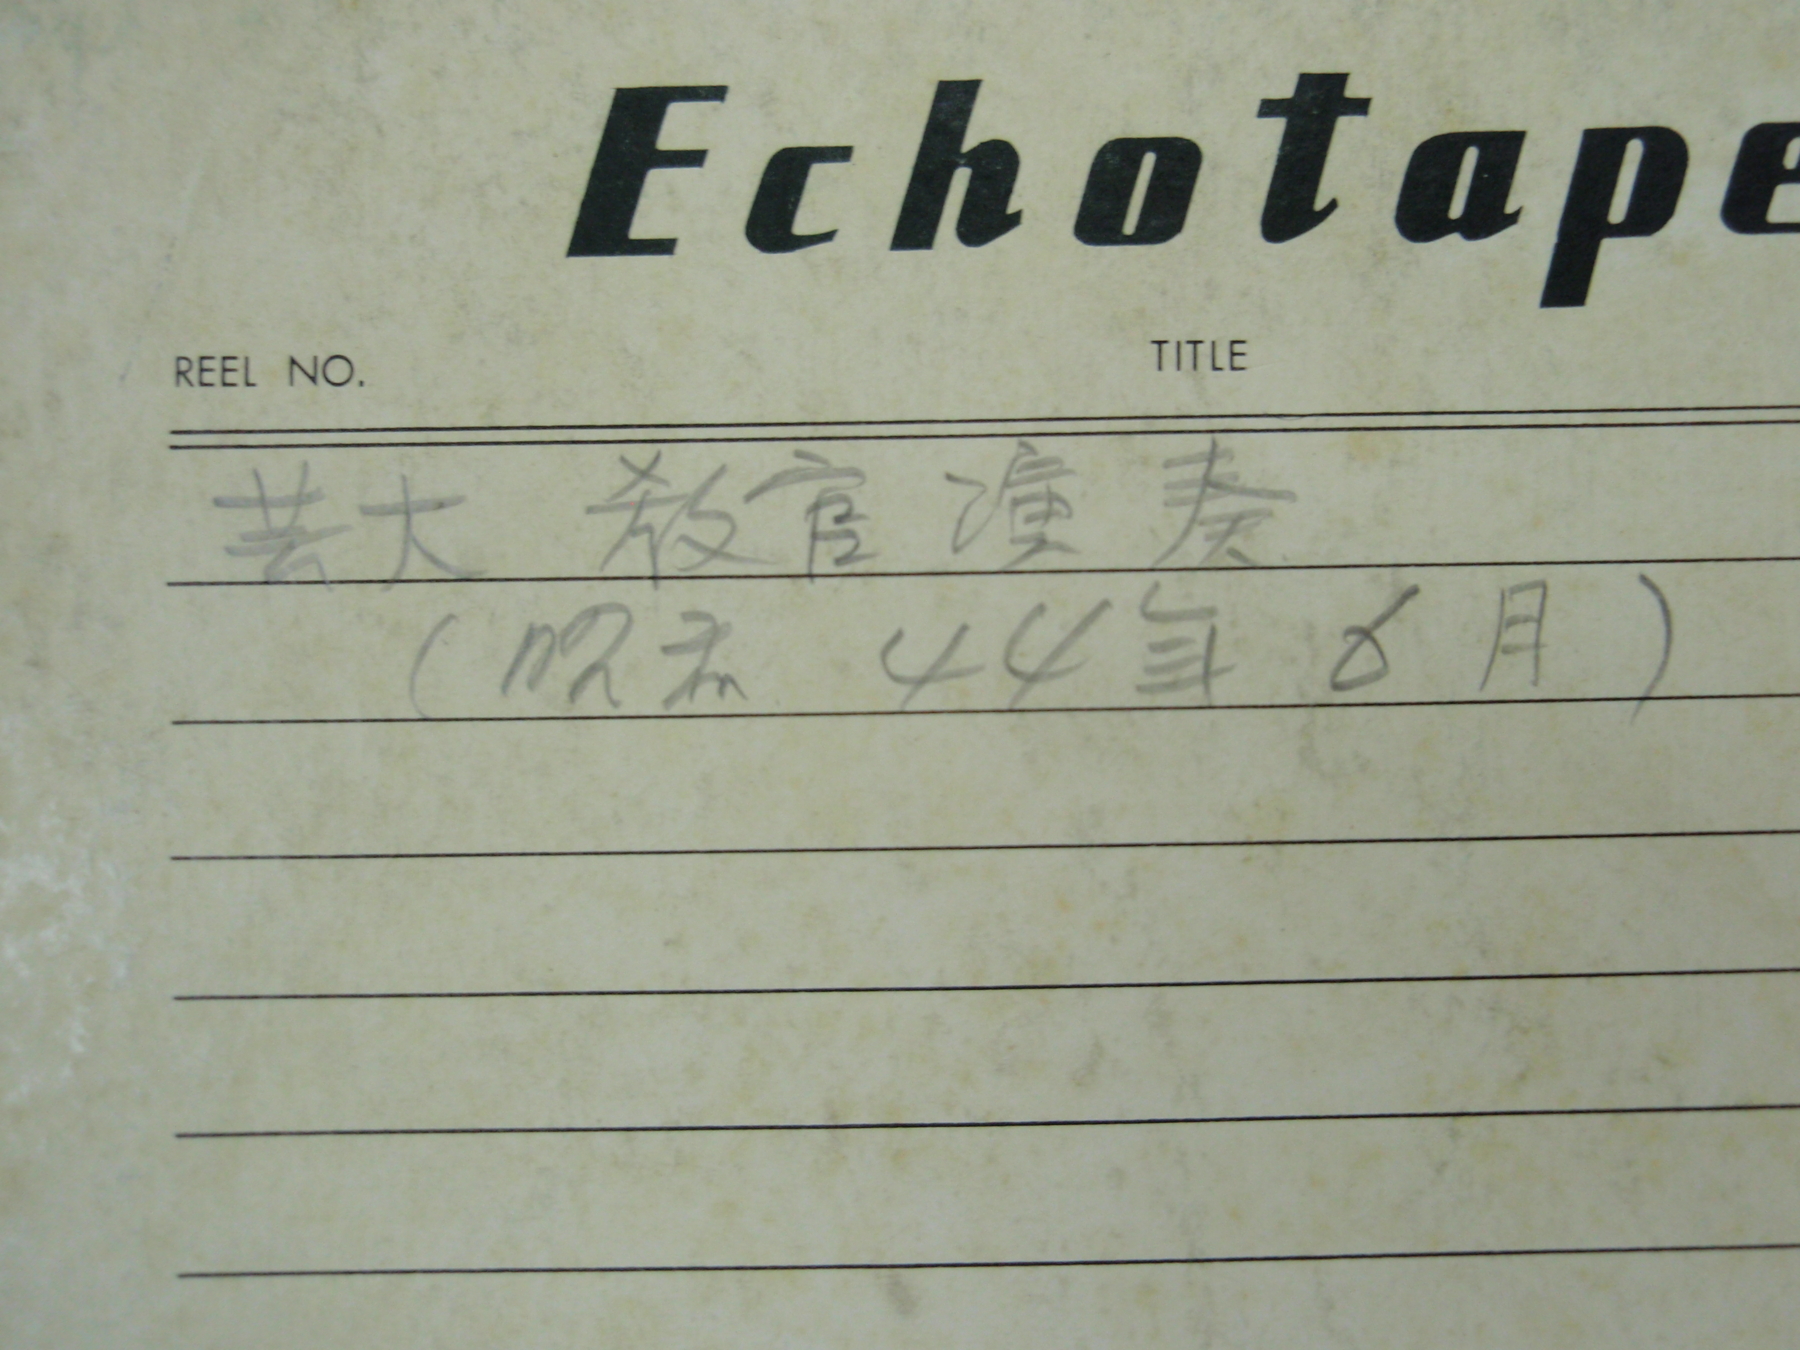 Echotape
REEL NO. TITLE
芸大 教官演奏
(昭和 44年 6月)